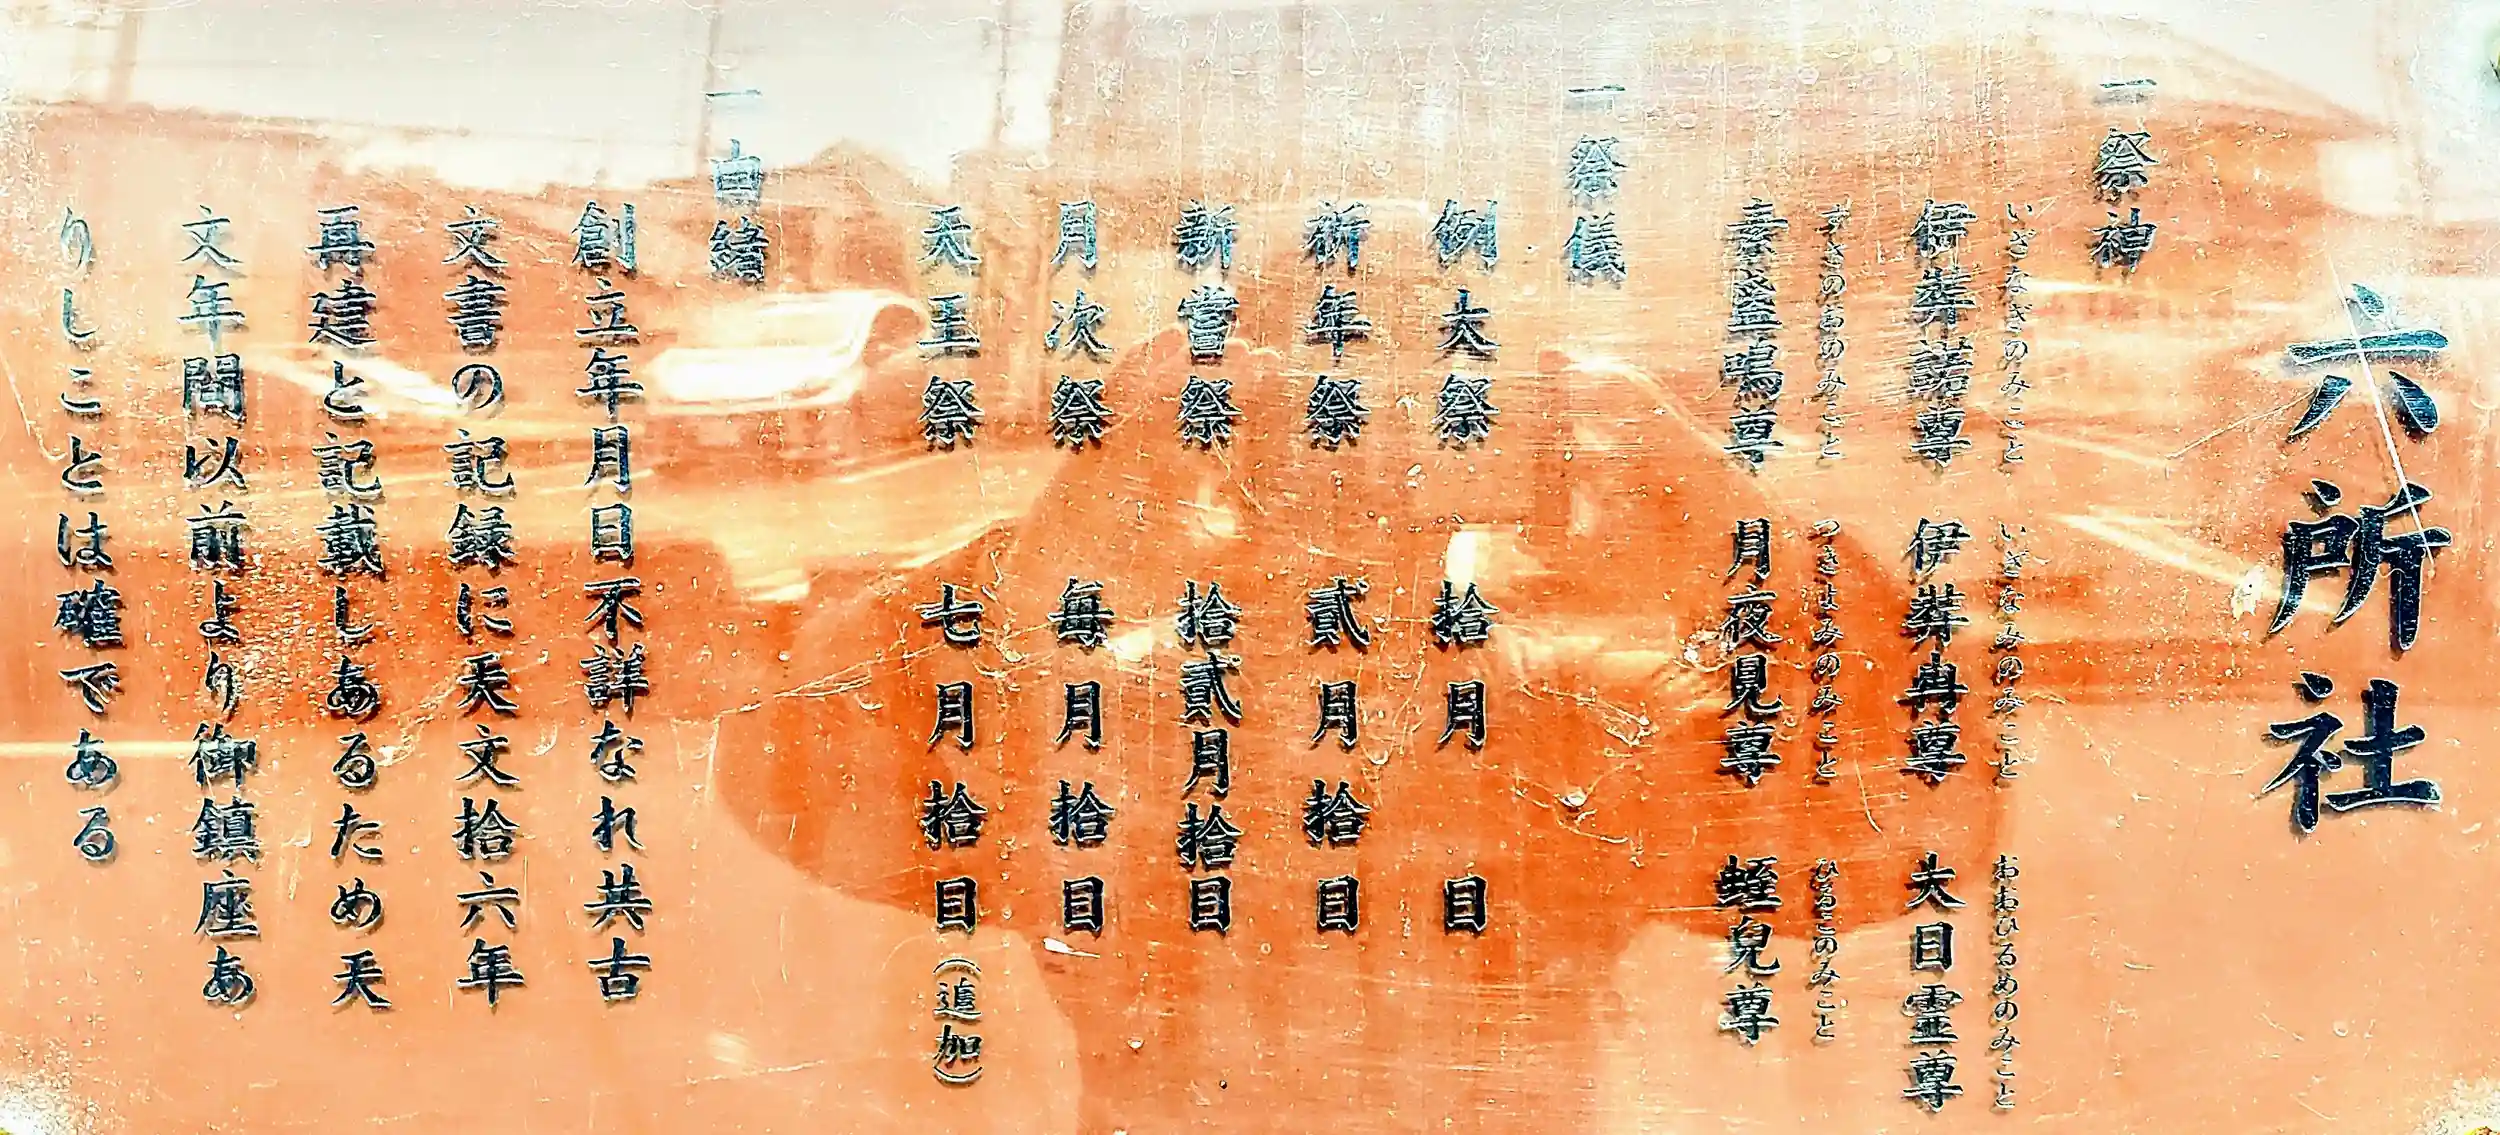 六所社
一祭神
いざなぎのみこと いざなみのみこと おおひるめのみこと
伊弉諾尊 伊弉冉尊 大日霊尊
すさのおのみこと つきよみのみこと ひるこのみこと
素盞嗚尊 月夜見尊 蛭兒尊
一祭儀
例大祭 拾月 日
祈年祭 貳月拾日
新嘗祭 拾貳月拾日
月次祭 毎月拾日
天王祭 七月拾日(追加)
一由緒
創立年月日不詳なれ共古
文書の記録に天文拾六年
再建と記載しあるため天
文年間以前より御鎮座あ
りしことは確である